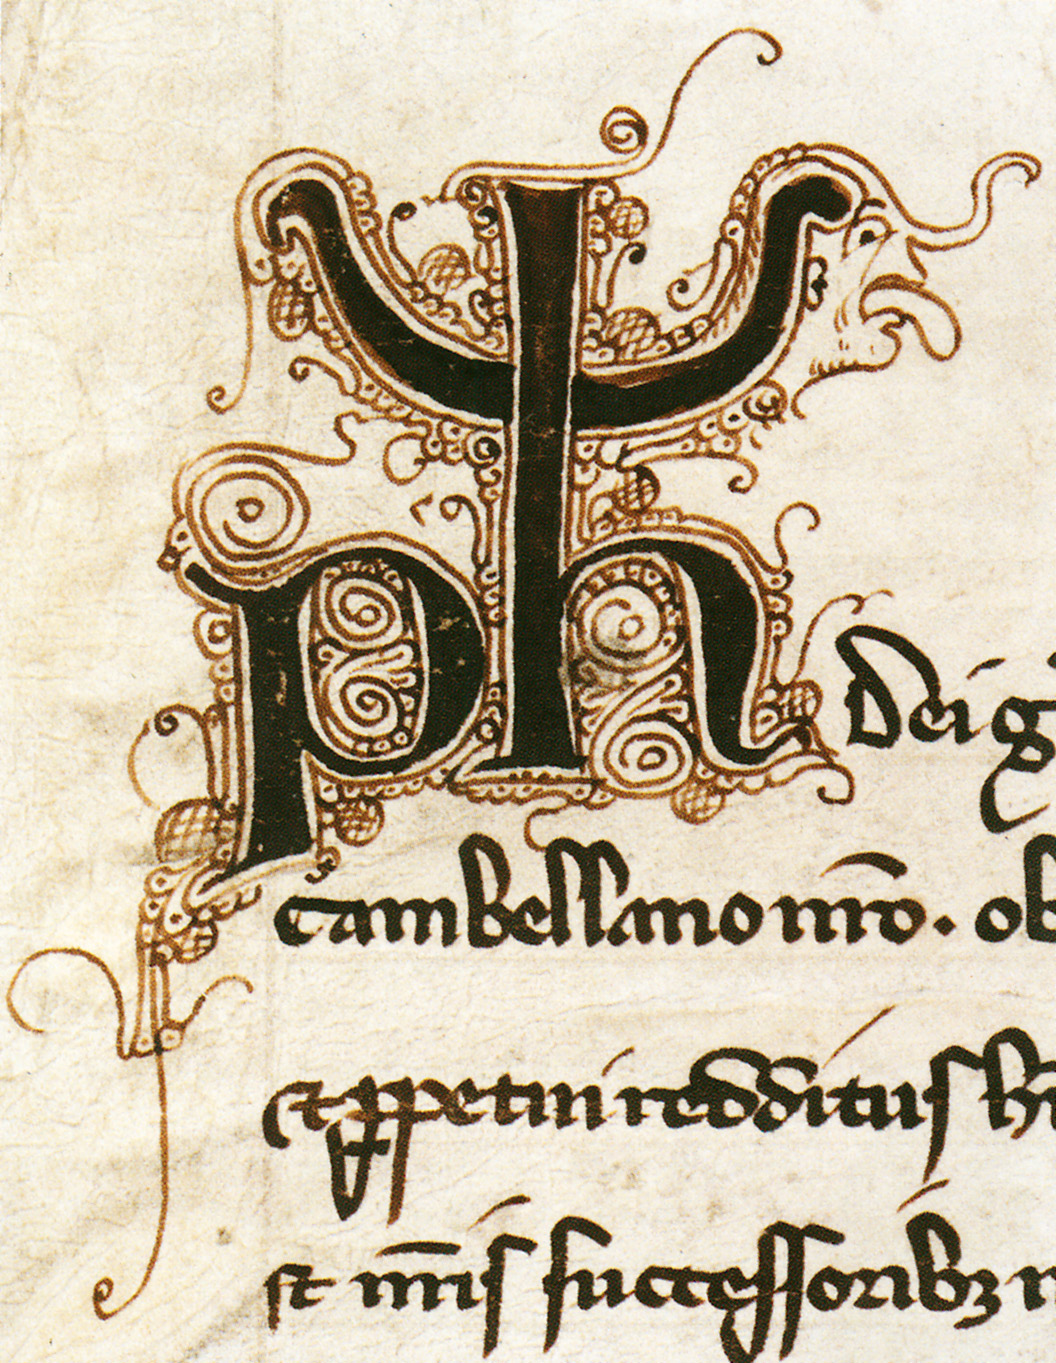 Ph Dei g
cambellano nr̄o. ob
et ꝑpetui redditus h
st nr̄is successoribꝫ n